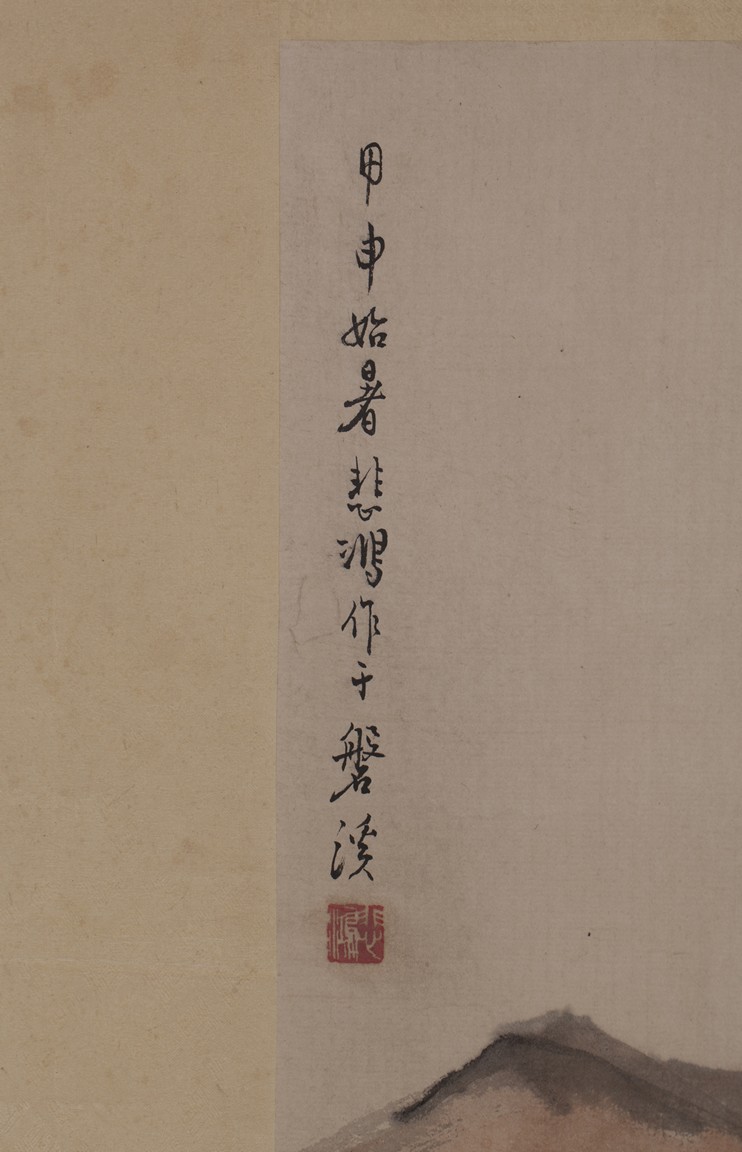 甲申始暑悲鴻作于磐溪
悲鴻